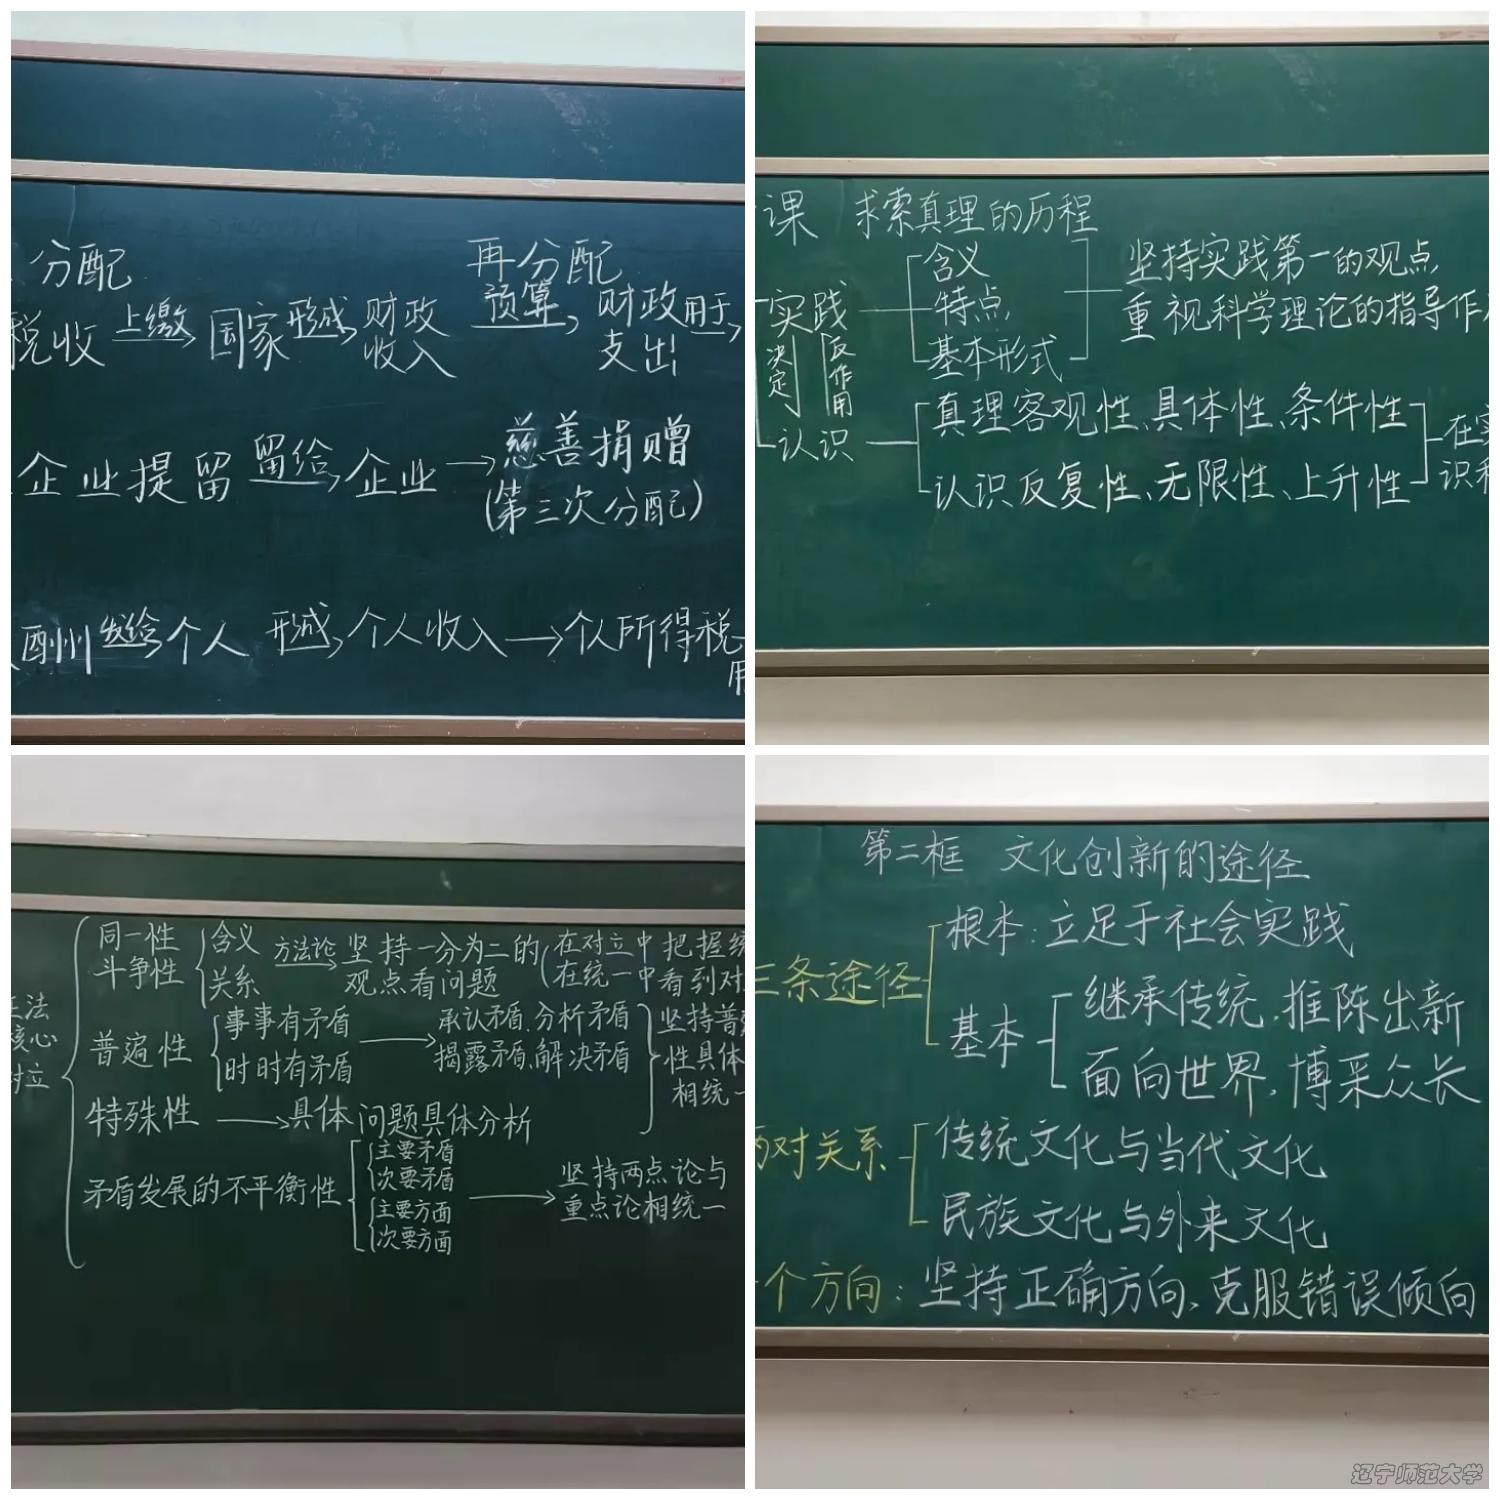 分配
税收 上缴 国家 形成 财政收入 再分配 预算 财政支出 用于
企业提留 留给 企业 慈善捐赠
(第三次分配)
酬 发给 个人 形成 个人收入 个人所得税
用
课 求索真理的历程
实践
含义
特点
基本形式
坚持实践第一的观点,
重视科学理论的指导作
决定
反作用
认识
真理客观性、具体性、条件性
认识反复性、无限性、上升性
在
识
同一性
斗争性
含义
关系
方法论
坚持一分为二的
观点看问题
在对立中把握统
在统一中看到对
法
核心
对立
普遍性
事事有矛盾
时时有矛盾
承认矛盾、分析矛盾
揭露矛盾、解决矛盾
坚持普
性具体
相统一
特殊性
具体问题具体分析
矛盾发展的不平衡性
主要矛盾
次要矛盾
主要方面
次要方面
坚持两点论与
重点论相统一
第二框 文化创新的途径
三条途径
根本:立足于社会实践
基本
继承传统,推陈出新
面向世界,博采众长
两对关系
传统文化与当代文化
民族文化与外来文化
个方向:坚持正确方向、克服错误倾向
辽宁师范大学